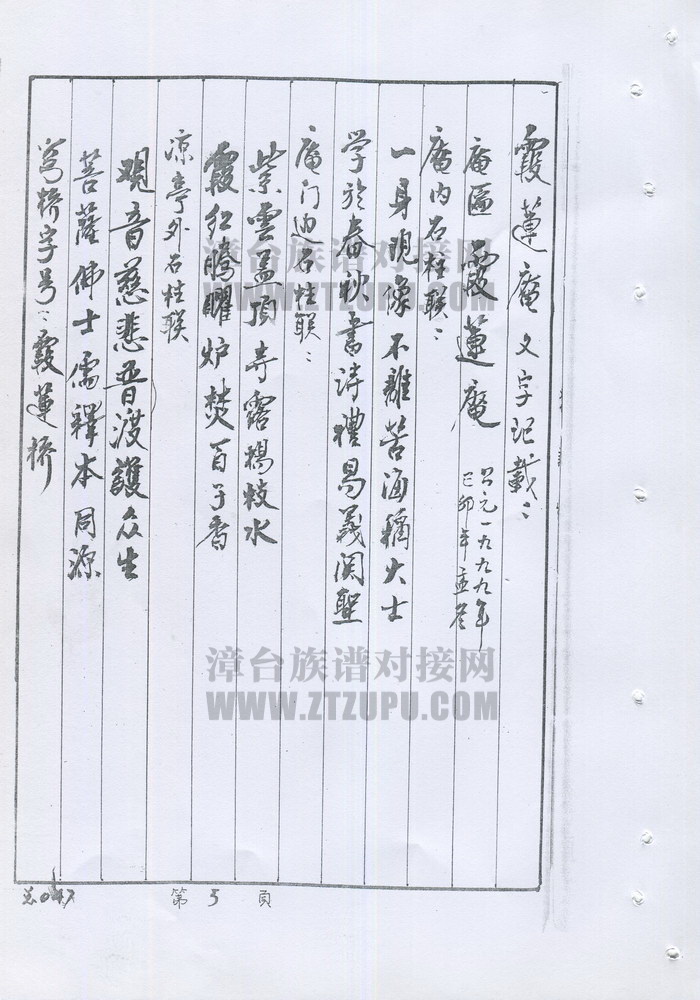 霞莲庵文字记载：
庵匾 霞莲庵 公元一九九九年
己卯年孟冬
庵内石柱联：
一身现像不離苦海稱大士
学於春秋書诗禮易義関聖
庵门边石柱联：
紫雲盖顶寺露楊枝水
霞红腾耀炉焚百子香
凉亭外石柱联
观音慈悲普渡護众生
菩薩佛士儒釋本同源
莺桥字号：霞莲桥
漳台族谱对接网
WWW.ZTZUPU.COM
漳台族谱对接网
WWW.ZTZUPU.COM
第 5 頁